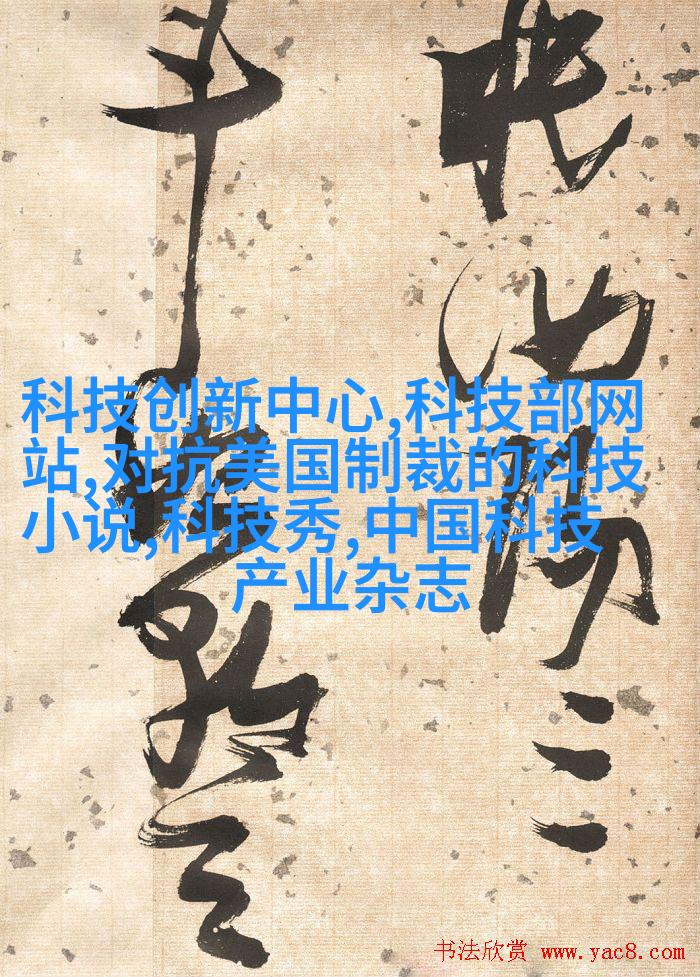 眠汝陽三
斗始朝天
科技创新中心,科技部网
站,对抗美国制裁的科技
小说,科技秀,中国科技
产业杂志
书法欣赏 www.yac8.com